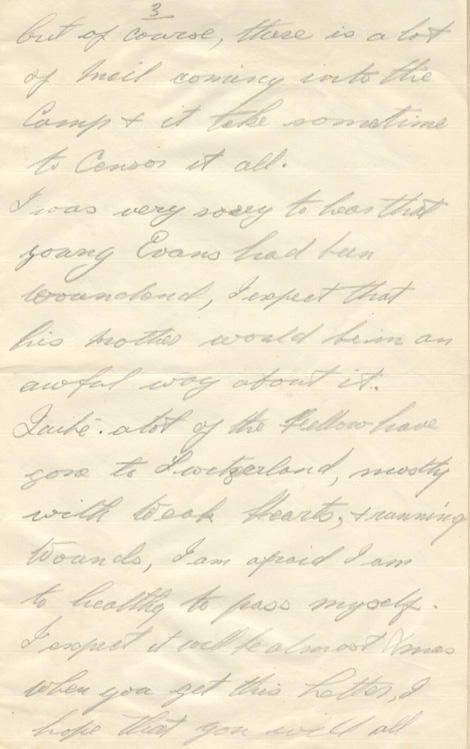 3
but of course, there is a lot
of Mail coming into the
Camp & it take sometime
to Censor it all.
I was very sorry to hear that
young Evans had been
wounded, I expect that
his Mother would be in an
awful way about it.
Quite a lot of the Fellow have
gone to Switzerland, mostly
with Weak Hearts, & running
Wounds, I am afraid I am
to healthy to pass myself.
I expect it will be almost Xmas
when you get this Letter, I
hope that you will all